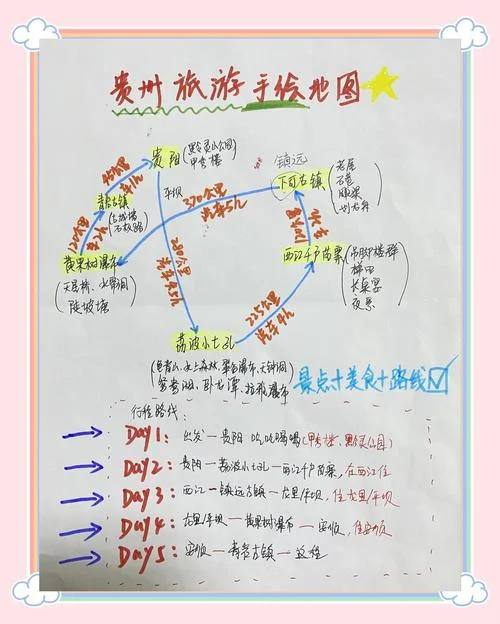 贵州旅游手绘地图
贵阳
(黔灵山公园
甲秀楼)
平坝
青岩古镇
黄果树瀑布
天星桥、水帘洞
陡坡塘
镇远
下司古镇
270公里
汽车5h
280公里
汽车4.5h
225公里
汽车4h
120公里
西江千户苗寨
(吊脚楼群
梯田
长桌宴
夜景)
荔波小七孔
水上森林、翠谷瀑布、天钟洞
鸳鸯湖、卧龙潭、拉雅瀑布)
景点+美食+路线
行程路线:
Day1: 出发—贵阳 吃吃喝喝(甲秀楼、黔灵公园)
Day2: 贵阳—荔波小七孔—西江千户苗寨,在西江住
Day3: 西江—镇远古镇—龙里/平坝,住龙里/平坝
Day4: 龙里/平坝—黄果树瀑布—安顺,住安顺
Day5: 安顺—青岩古镇—返程